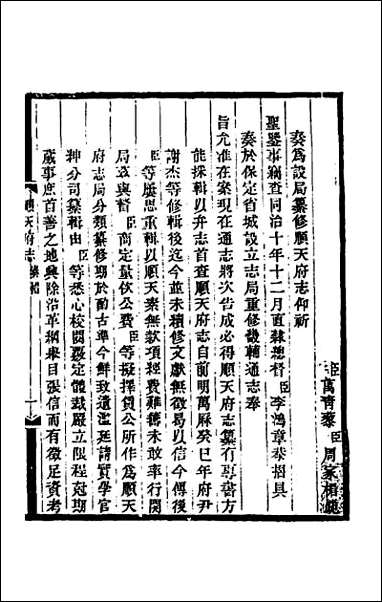 臣萬青藜臣周家楣跪
奏為設局纂修順天府志仰祈
聖鑒事竊查同治十年十二月直隸總督臣李鴻章恭摺具
奏於保定省城設立志局重修畿輔通志奉
旨允准在案現在通志將次告成必得順天府志纂有專書方
能採輯以弁志首查順天府志自前明萬厤癸巳年府尹
謝杰等修輯後迄今並未續修文獻無徵曷以信今傳後
臣等屢思重輯以順天素無款項經費難籌未敢率行開
局茲與督臣商定量攸公費臣等擬擇賃公所作為順天
府志局分類纂修期於酌古準今鮮致遺濫延請實學官
紳分司纂輯由臣等悉心校閱釐定體裁嚴立限程尅期
蕆事庶首善之地興除沿革綱舉目張信而有徵足資考
順天府志
一